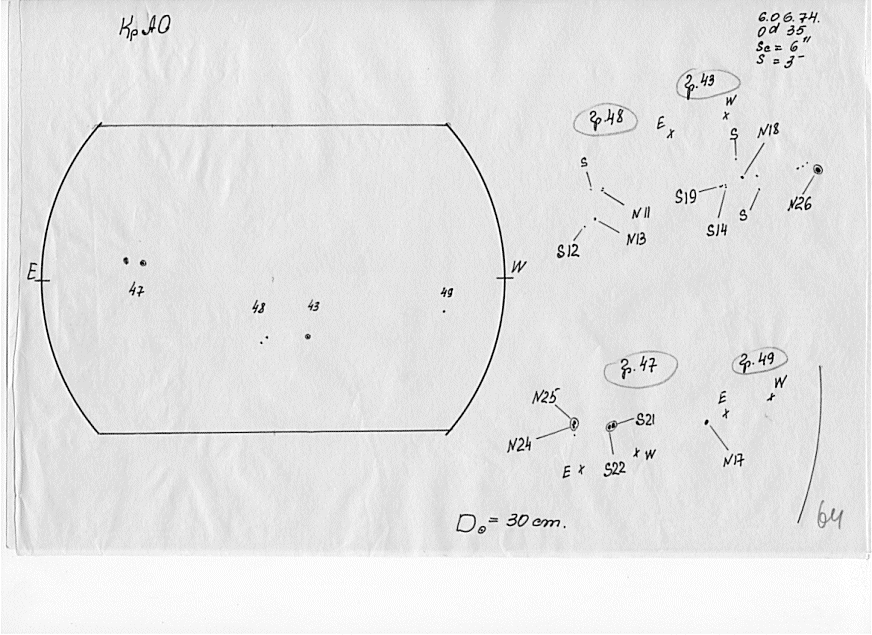 КрАО
6.06.74.
Od 35
Sc = 6"
S = 3-
гр.48
гр.43
E
W
S
S
N18
N11
S12
N13
S19
S14
S
N26
E
W
47
48
43
49
гр.47
гр.49
N25
N24
S21
S22
E
W
E
W
N17
D⊙ = 30 cm.
64